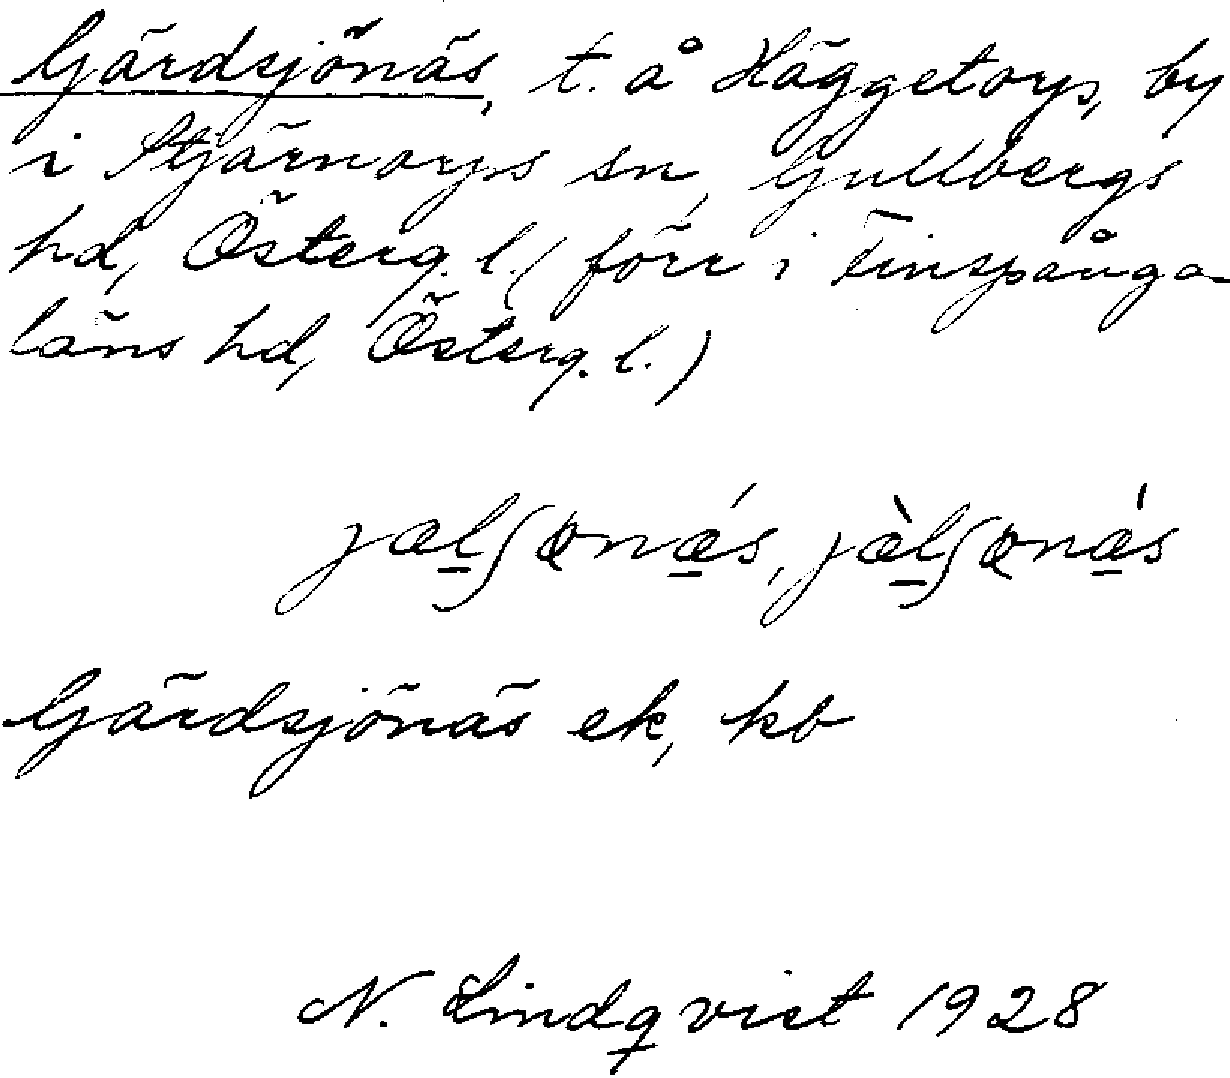 Gärdsjönäs, t. å Häggetorps, by
i Stjärnorps sn, Gullbergs
hd, Österg. l. (förr i Finspånga-
läns hd, Österg. l.)
Gärdsjönäs ek, kb
N. Lindqvist 1928